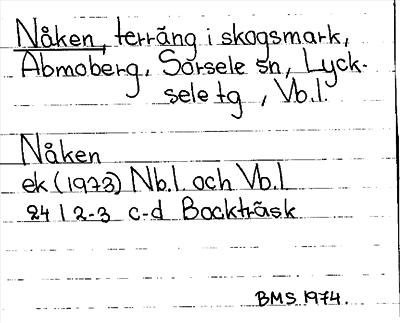 Nåken, terräng i skogsmark,
Abmoberg, Sorsele sn, Lyck-
sele tg, Vb.l.
Nåken
ek (1973) Nb.l. och Vb.l.
24 I 2-3 c-d Bockträsk
BMS 1974.